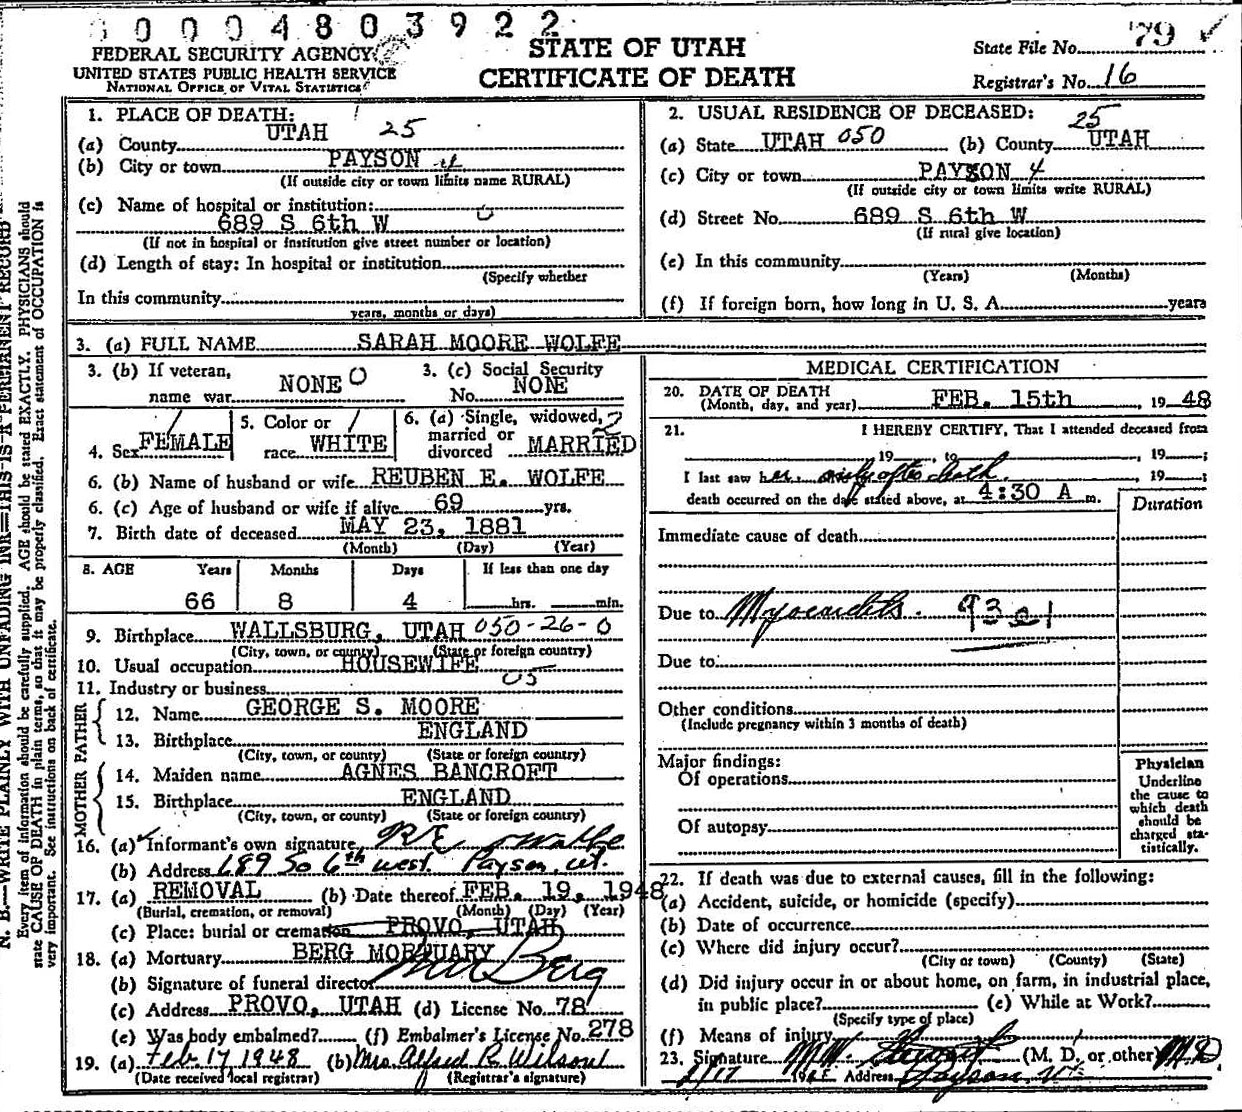 0 0 0 4 8 0 3 9 2 2
FEDERAL SECURITY AGENCY
UNITED STATES PUBLIC HEALTH SERVICE
NATIONAL OFFICE OF VITAL STATISTICS
STATE OF UTAH
CERTIFICATE OF DEATH
State File No. 79
Registrar's No. 16
N. B.—WRITE PLAINLY WITH UNFADING INK—THIS IS A PERMANENT RECORD
Every item of information should be carefully supplied. AGE should be stated EXACTLY. PHYSICIANS should
state CAUSE OF DEATH in plain terms, so that it may be properly classified. Exact statement of OCCUPATION is
very important. See instructions on back of certificate.
1. PLACE OF DEATH:
(a) County UTAH 25
(b) City or town PAYSON 4
(If outside city or town limits name RURAL)
(c) Name of hospital or institution:
689 S 6th W 0
(If not in hospital or institution give street number or location)
(d) Length of stay: In hospital or institution
(Specify whether
In this community
years, months or days)
2. USUAL RESIDENCE OF DECEASED:
25
(a) State UTAH 050 (b) County UTAH
(c) City or town PAYSON 4
(If outside city or town limits write RURAL)
(d) Street No. 689 S 6th W
(If rural give location)
(e) In this community
(Years) (Months)
(f) If foreign born, how long in U. S. A. years
3. (a) FULL NAME SARAH MOORE WOLFE
3. (b) If veteran,
name war NONE 0
3. (c) Social Security
No. NONE
4. Sex FEMALE
5. Color or
race WHITE
6. (a) Single, widowed, 2
married or
divorced MARRIED
6. (b) Name of husband or wife REUBEN E. WOLFE
6. (c) Age of husband or wife if alive 69 yrs.
7. Birth date of deceased MAY 23, 1881
(Month) (Day) (Year)
8. AGE Years Months Days If less than one day
66 8 4 hrs. min.
9. Birthplace WALLSBURG, UTAH 050-26-0
(City, town, or county) (State or foreign country)
10. Usual occupation HOUSEWIFE
05
11. Industry or business
FATHER
12. Name GEORGE S. MOORE
13. Birthplace ENGLAND
(City, town, or county) (State or foreign country)
MOTHER
14. Maiden name AGNES BANCROFT
15. Birthplace ENGLAND
(City, town, or county) (State or foreign country)
16. (a) Informant's own signature R E Wolfe
(b) Address 689 So 6th west. Payson, Ut.
17. (a) REMOVAL (b) Date thereof FEB. 19, 1948
(Burial, cremation, or removal) (Month) (Day) (Year)
(c) Place: burial or cremation PROVO, UTAH
18. (a) Mortuary BERG MORTUARY
(b) Signature of funeral director Berg
(c) Address PROVO, UTAH (d) License No. 78
(e) Was body embalmed? (f) Embalmer's License No. 278
19. (a) Feb 17 1948 (b) Mrs. Alfred R. Wilson
(Date received local registrar) (Registrar's signature)
MEDICAL CERTIFICATION
20. DATE OF DEATH
(Month, day, and year) FEB. 15th, 19 48
21. I HEREBY CERTIFY, That I attended deceased from
, 19 , to , 19 ;
I last saw her only after death. , 19 ;
death occurred on the date stated above, at 4:30 A m.
Duration
Immediate cause of death
Due to Myocarditis. 93
Due to
Other conditions
(Include pregnancy within 3 months of death)
Major findings:
Of operations
Of autopsy
Physician
Underline
the cause to
which death
should be
charged sta-
tistically.
22. If death was due to external causes, fill in the following:
(a) Accident, suicide, or homicide (specify)
(b) Date of occurrence
(c) Where did injury occur?
(City or town) (County) (State)
(d) Did injury occur in or about home, on farm, in industrial place,
in public place? (e) While at Work?
(Specify type of place)
(f) Means of injury
23. Signature Stewart (M. D. or other) M D
2/17 1948 Address Payson Ut.